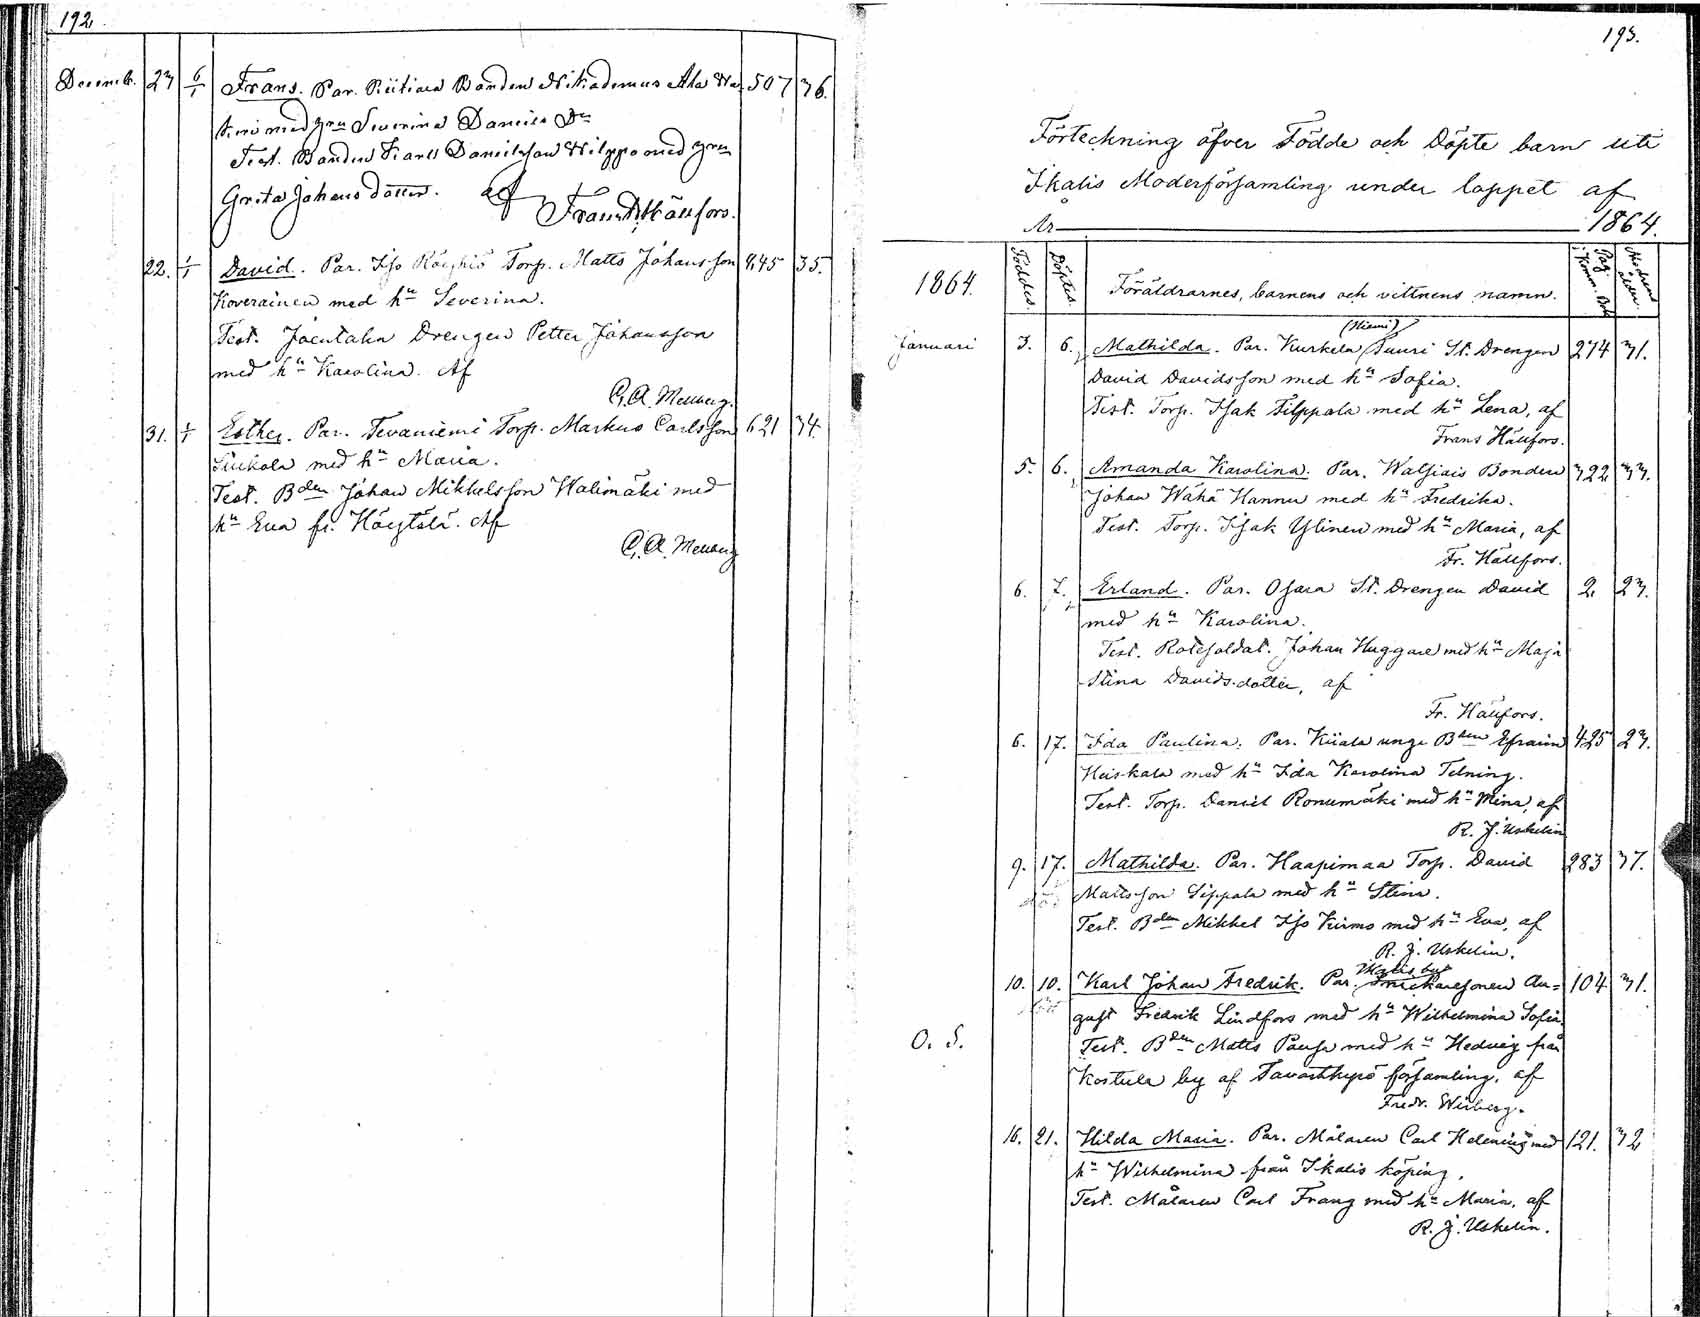 192
Decemb. 23 6/1 Frans. Par. Riitiala Bonden Nikodemus Aha Wa 507 36.
niemi med hru Severina Daniels Dr
Test. Bonden Frans Danielsson Hilppo med hru
Greta Johans dotter. af
Frans Hällfors.
22. 1/1 David. Par. Iso Röyhiö Torp. Matts Johansson 845 35.
Koverainen med hu Severina.
Test. Drengen Petter Johansson
med hu Karolina. Af
C. A. Mellberg.
31. 1/1 Esther. Par. Tevaniemi Torp. Markus Carlsson 621 34.
med hu Maria.
Test. Bden Johan Mikkelsson Halimäki med
hu Eva fr. Höytölä. Af
C. A. Mellberg
193.
Förteckning öfver Födde och Döpte barn uti
Ikalis Moderförsamling under loppet af
År 1864.
1864. Föddes. Döptes. Föräldrarnes, barnens och vittnens namn. Pag. i Komm. Bok Modrens ålder.
(Niemi)
Januari 3. 6. Mathilda. Par. Kurkela Juuri St. Drengen 274 31.
David Davidsson med hu Sofia.
Test. Torp. Isak Filppala med hu Lena, af
Frans Hällfors.
5. 6. Amanda Karolina. Par. Walsiais Bonden 322 33.
Johan Wähä Hannu med hu Fredrika.
Test. Torp. Isak Ylinen med hu Maria, af
Fr. Hällfors.
6. 7. Erland. Par. Osara St. Drengen David 2. 23.
med hu Karolina.
Test. Rotesoldat. Johan Huggare med hu Maja
Stina Davids-dotter, af
Fr. Hällfors.
6. 17. Ida Paulina. Par. Kiiala unge Bden Efraim 425 23.
Heiskala med hu Ida Karolina Telning.
Test. Torp. Daniel Ronumäki med hu Mina, af
R. J. Uskelin
9. 17. Mathilda. Par. Haapimaa Torp. David 283 37.
Mattsson Sippala med hu Stina.
Test. Bden Mikkel Iso Kirmo med hu Eva, af
R. J. Uskelin.
10. 10. Karl Johan Fredrik. Par. Snickaresonen Au= 104 31.
gust Fredrik Lindfors med hu Wilhelmina Sofia.
O. S. Test. Bden Matts Paasa med hu Hedvig från
Kostula by af Tavastkyrö församling, af
Fredr. Weiberg.
16. 21. Hilda Maria. Par. Målaren Carl Helenius med 121. 32
hu Wilhelmina från Ikalis köping.
Test. Målaren Carl Frang med hu Maria, af
R. J. Uskelin.